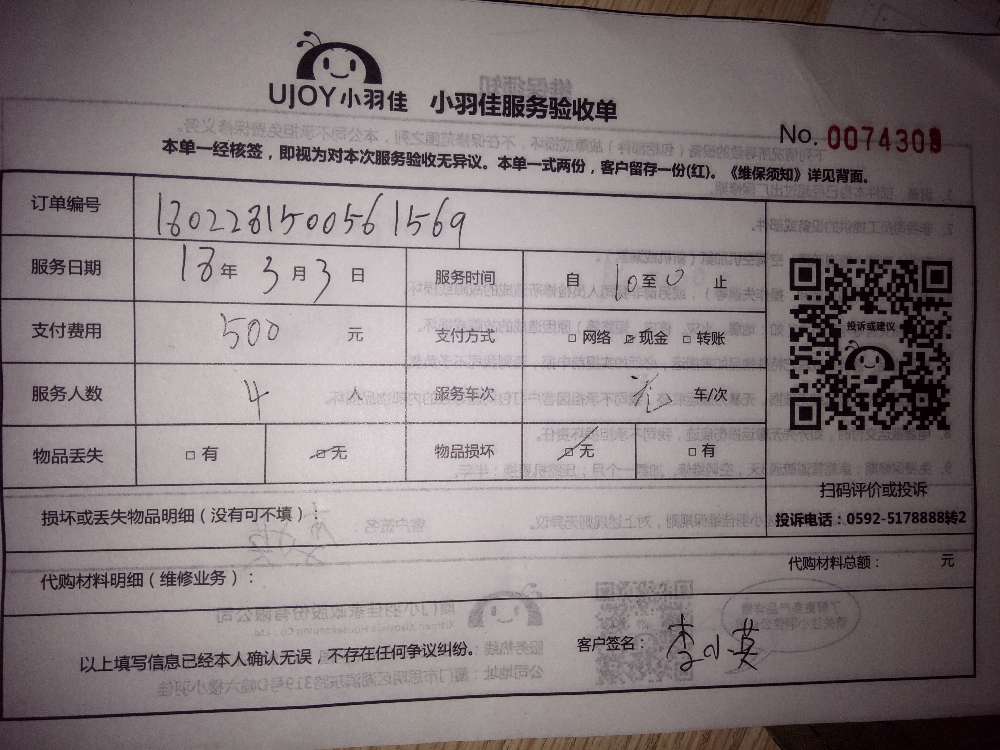 UJOY小羽佳 小羽佳服务验收单
No. 0074308
本单一经核签，即视为对本次服务验收无异议。本单一式两份，客户留存一份(红)。《维保须知》详见背面。
订单编号 180228150056 1569
服务日期 18年3月3日 服务时间 自10至 止
支付费用 500 元 支付方式 □ 网络 ☑ 现金 □ 转账
服务人数 4 人 服务车次 车/次
物品丢失 □ 有 ☑ 无 物品损坏 ☑ 无 □ 有
投诉或建议
扫码评价或投诉
投诉电话：0592-5178888转2
损坏或丢失物品明细（没有可不填）：
代购材料明细（维修业务）： 代购材料总额： 元
以上填写信息已经本人确认无误，不存在任何争议纠纷。 客户签名：李小英